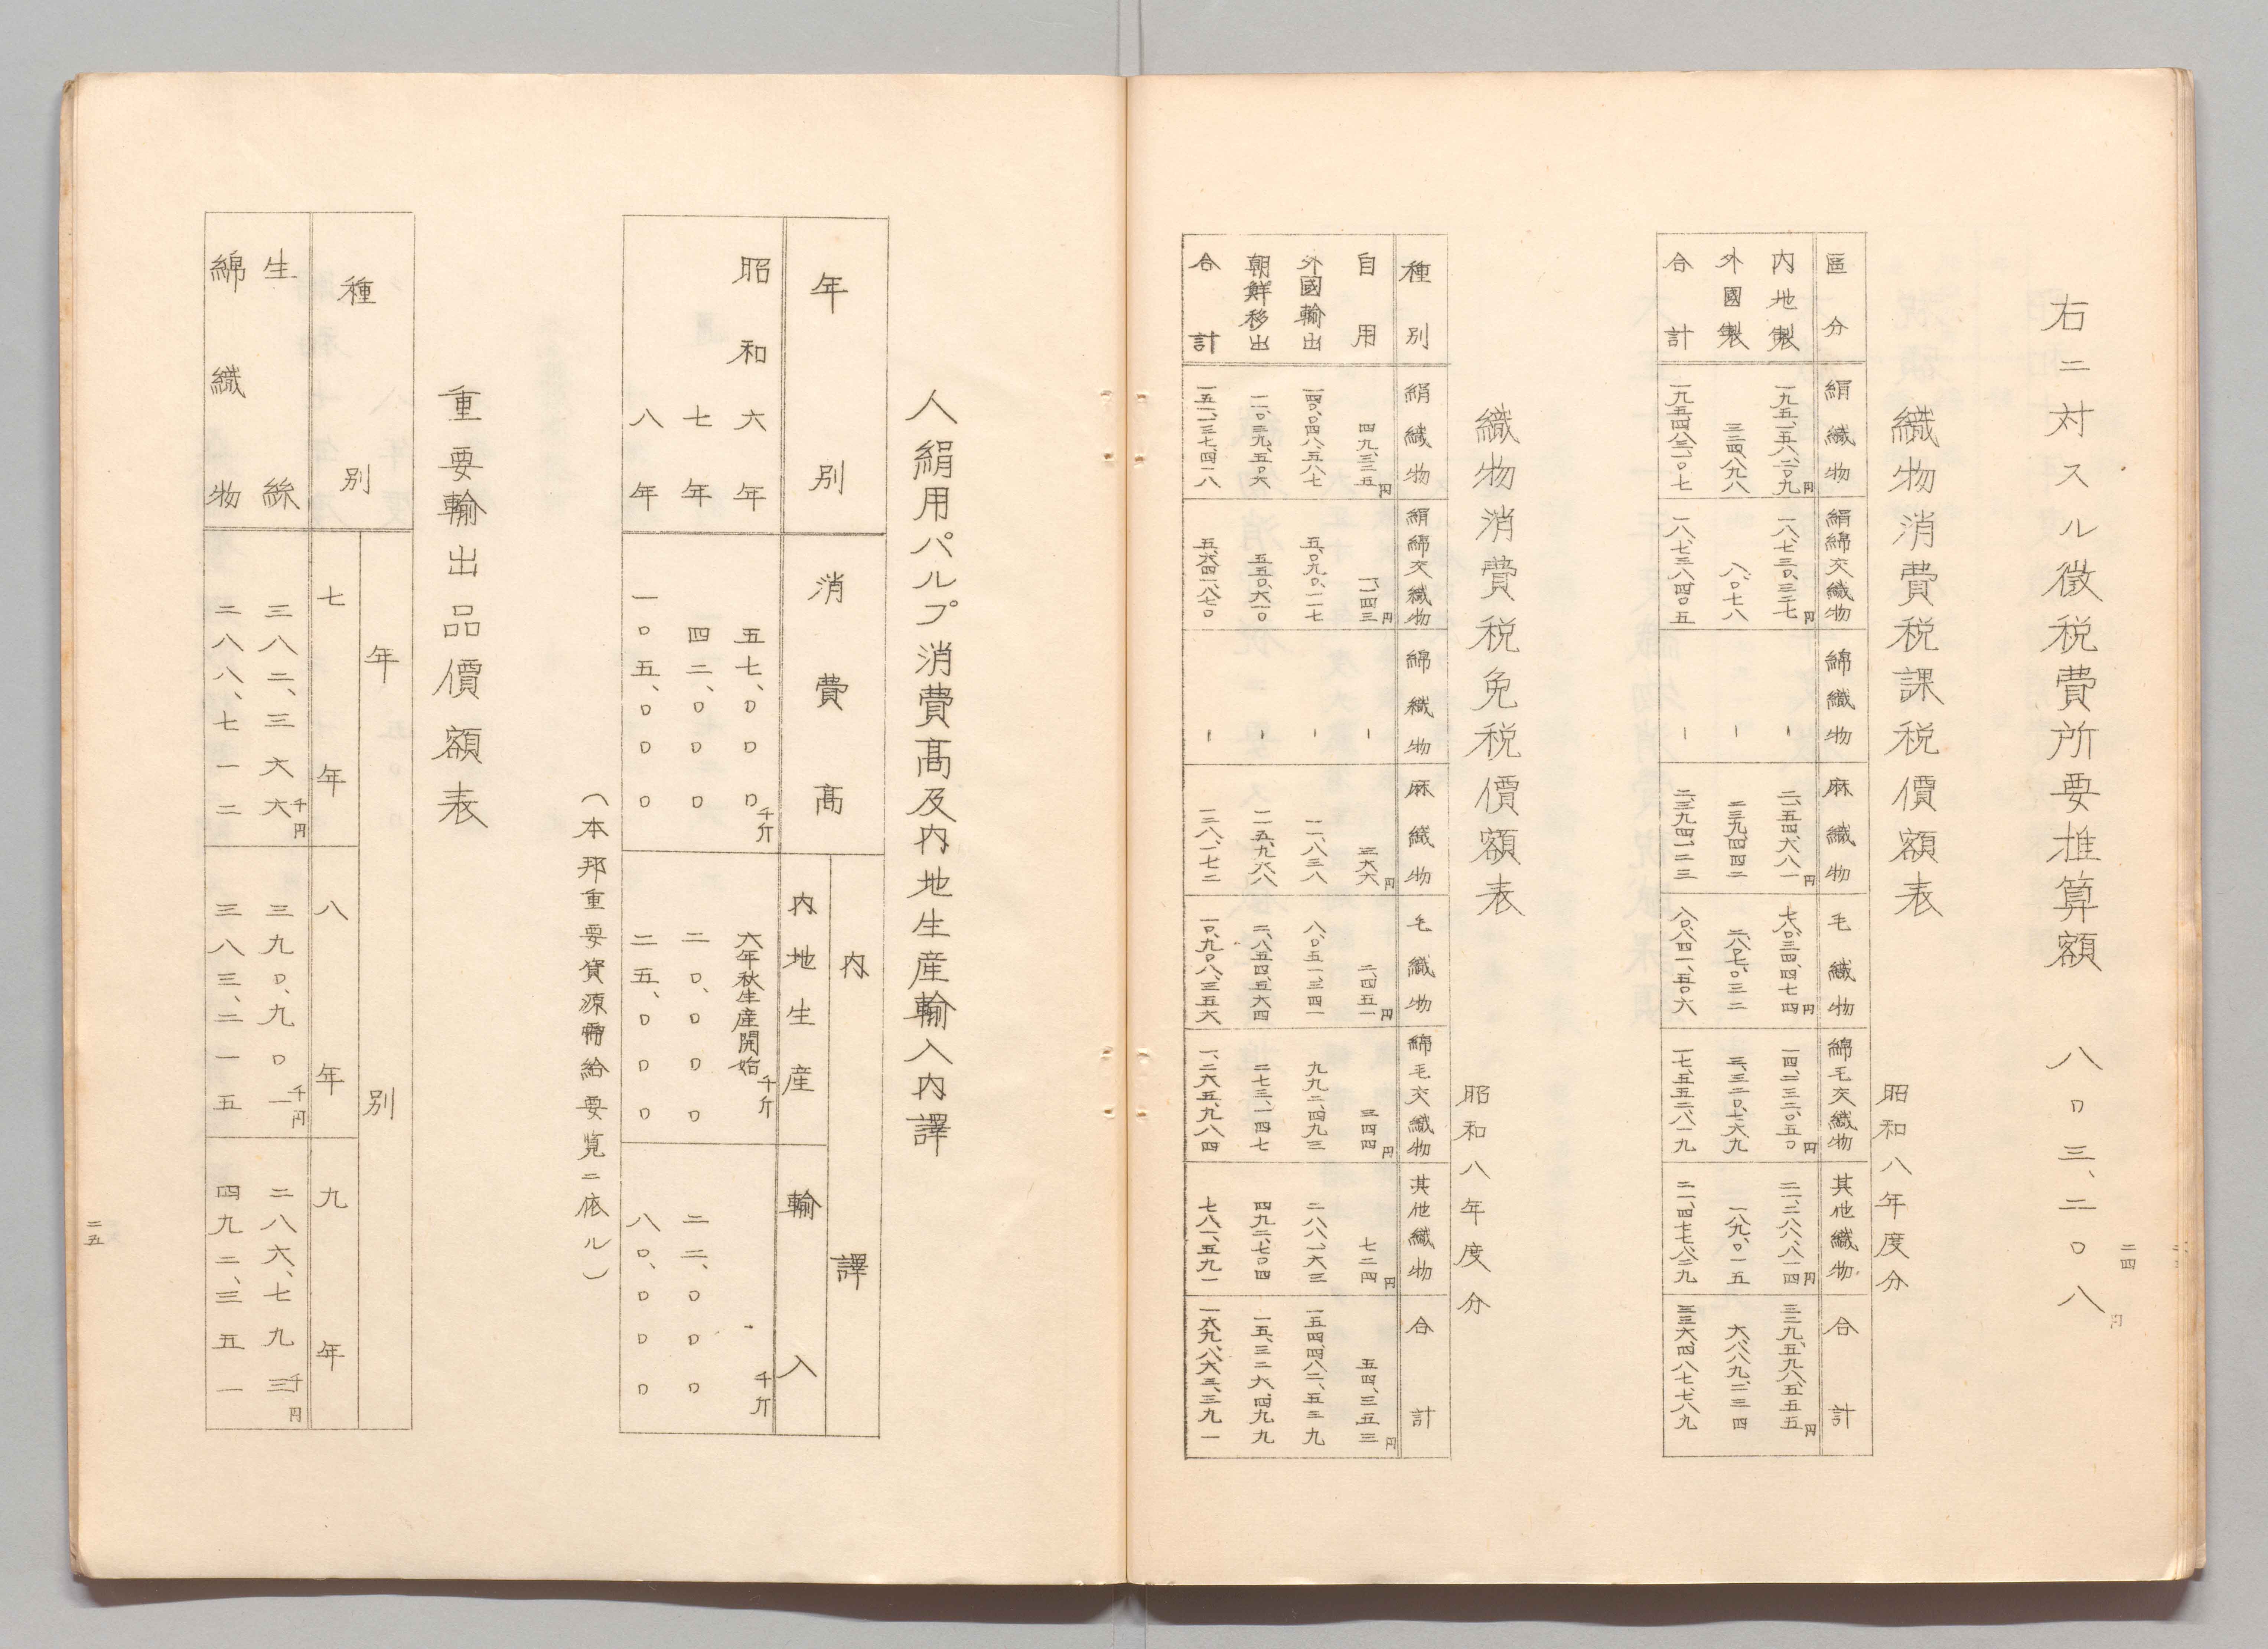 二四
右ニ対スル徴税費所要推算額　八〇三、二〇八円
織物消費税課税價額表　昭和八年度分
區分　絹織物　絹綿交織物　綿織物　麻織物　毛織物　綿毛交織物　其他織物　合計
内地製　一九五、一五八、二〇九円　一八、七三〇、三二七円　－　二、一五四、六八一円　七八、〇三四、四七四円　一四、二三二、〇五〇円　二一、二八八、八一四円　三二九、五九八、五五五円
外國製　三二四、八九八　八、〇七八　－　二三九、四四二　二、八〇七、〇三二　三、三二〇、七六九　一八九、〇一五　六、八八九、二三四
合計　一九五、四八三、一〇七　一八、七三八、四〇五　－　二、三九四、一二三　八〇、八四一、五〇六　一七、五五二、八一九　二一、四七七、八二九　三三六、四八七、七八九
織物消費税免税價額表　昭和八年度分
種別　絹織物　絹綿交織物　綿織物　麻織物　毛織物　綿毛交織物　其他織物　合計
自用　四九、三二五円　一、一四三円　－　三六六円　二、四五一円　三四四円　七二四円　五四、三五三円
外國輸出　一四〇、〇四八、五八七　五、〇九〇、一一七　－　一一、八三八　八、〇五一、三四一　九九二、四九三　二八八、一六三　一五四、四八二、五三九
朝鮮移出　一一、〇三九、五〇六　五五〇、六一〇　－　一一五、九六八　二、八五四、五六四　二七三、一四七　四九二、七〇四　一五、三二六、四九九
合計　一五一、一三七、四一八　五、六四一、八七〇　－　一二八、一七二　一〇、九〇八、三五六　一、二六五、九八四　七八一、五九一　一六九、八六三、三九一
人絹用パルプ消費高及内地生産輸入内譯
年別　消費高　内譯
内地生産　輸入
昭和六年　五七、〇〇〇千斤　六年秋生産開始千斤　－千斤
七年　四二、〇〇〇　二〇、〇〇〇　二二、〇〇〇
八年　一〇五、〇〇〇　二五、〇〇〇　八〇、〇〇〇
（本邦重要資源需給要覧ニ依ル）
重要輸出品價額表
種別　年別
七年　八年　九年
生絲　三八二、三六六千円　三九〇、九〇一千円　二八六、七九三千円
綿織物　二八八、七一二　三八三、二一五　四九二、三五一
二五